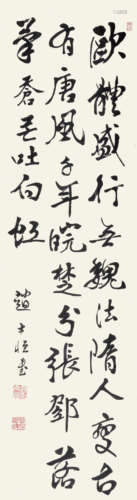 歐體盛行無魏法隋人變古
有唐風千年皖楚分張鄧下
筆蒼茫吐白虹
趙士恆書